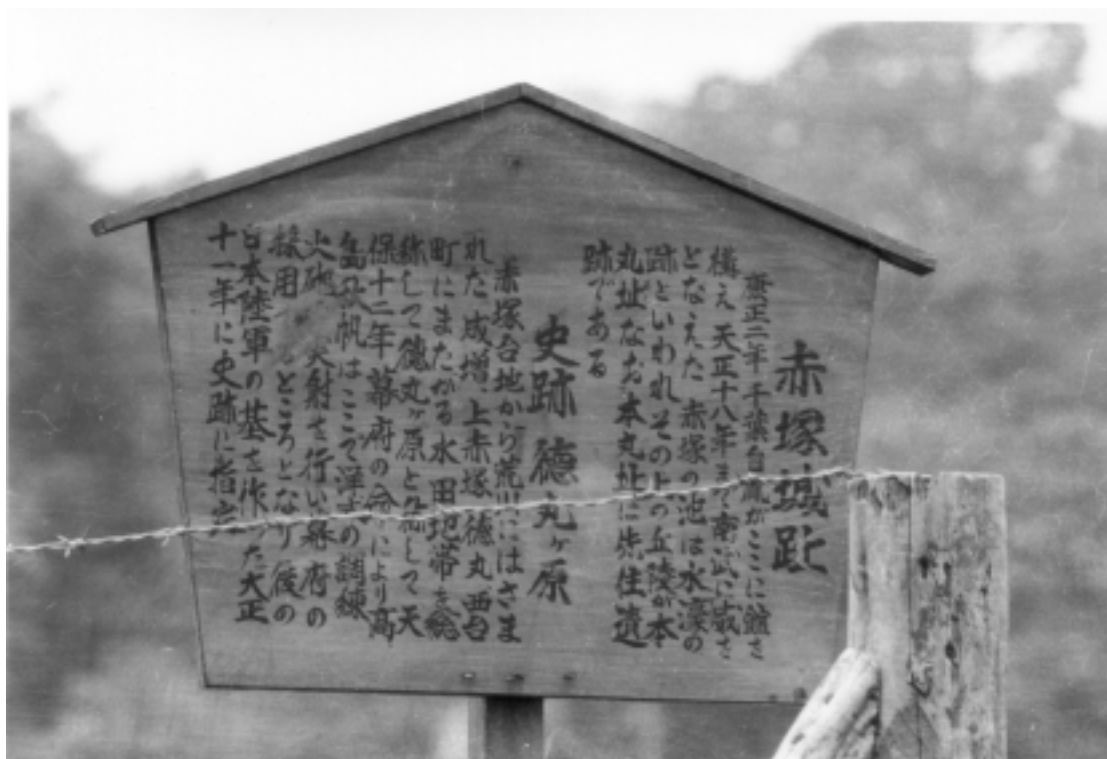 赤塚城趾
正二年千葉自胤がここに館を
構え天正十八年まで南武に威を
となえた 赤塚の池は水濠の
跡といわれその上の丘陵が本
丸址なお本丸址に住遺
跡である
史跡 徳丸ヶ原
赤塚台地から荒川にはさま
れた成増 上赤塚 徳丸 西台
町にまたがる水田地帯を総
称して徳丸ヶ原と称して天
保十二年幕府の命により高
島秋帆はここで洋式の調練
火砲 射を行い幕府の
採用 ところとなり後の
日本陸軍の基を作った大正
十一年に史跡に指定